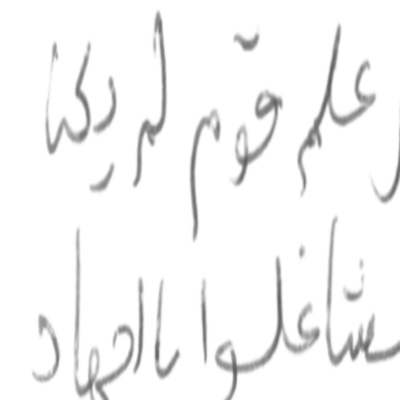 علم قوم لم يكن
تشاغلوا بالجهاد